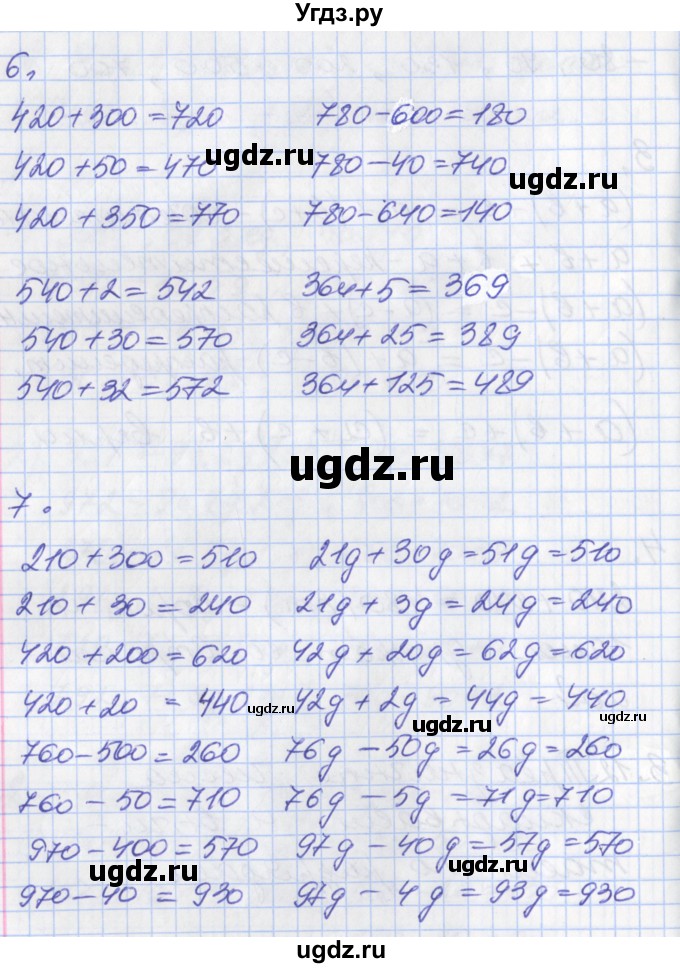 Угдз.ру
6,
420+300=720 780-600=180
420+50=470 780-40=740
ugdz.ru
ugdz.ru
420+350=770 780-640=140
540+2=542 364+5=369
540+30=570 364+25=389
540+32=572 364+125=489
ugdz.ru
7.
210+300=510 21g+30g=51g=510
210+30=240 21g+3g=24g=240
420+200=620 42g+20g=62g=620
420+20=440 42g+2g=44g=440
ugdz.ru
ugdz.ru
ugdz.ru
760-500=260 76g-50g=26g=260
760-50=710 76g-5g=71g=710
970-400=570 97g-40g=57g=570
ugdz.ru
ugdz.ru
970-40=930 97g-4g=93g=930
ugdz.ru